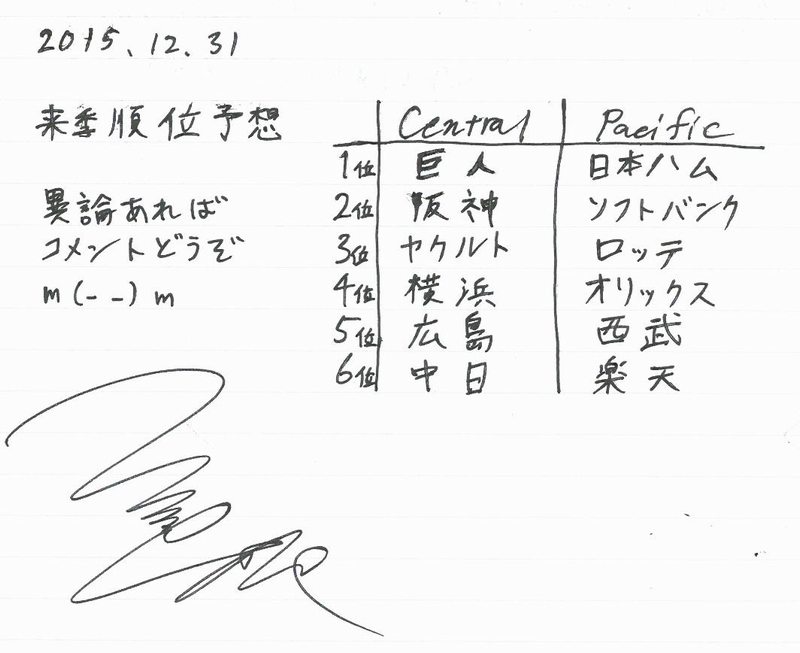 2015.12.31
来季順位予想
異論あれば
コメントどうぞ
m(--)m
Central Pacific
1位 巨人 日本ハム
2位 阪神 ソフトバンク
3位 ヤクルト ロッテ
4位 横浜 オリックス
5位 広島 西武
6位 中日 楽天